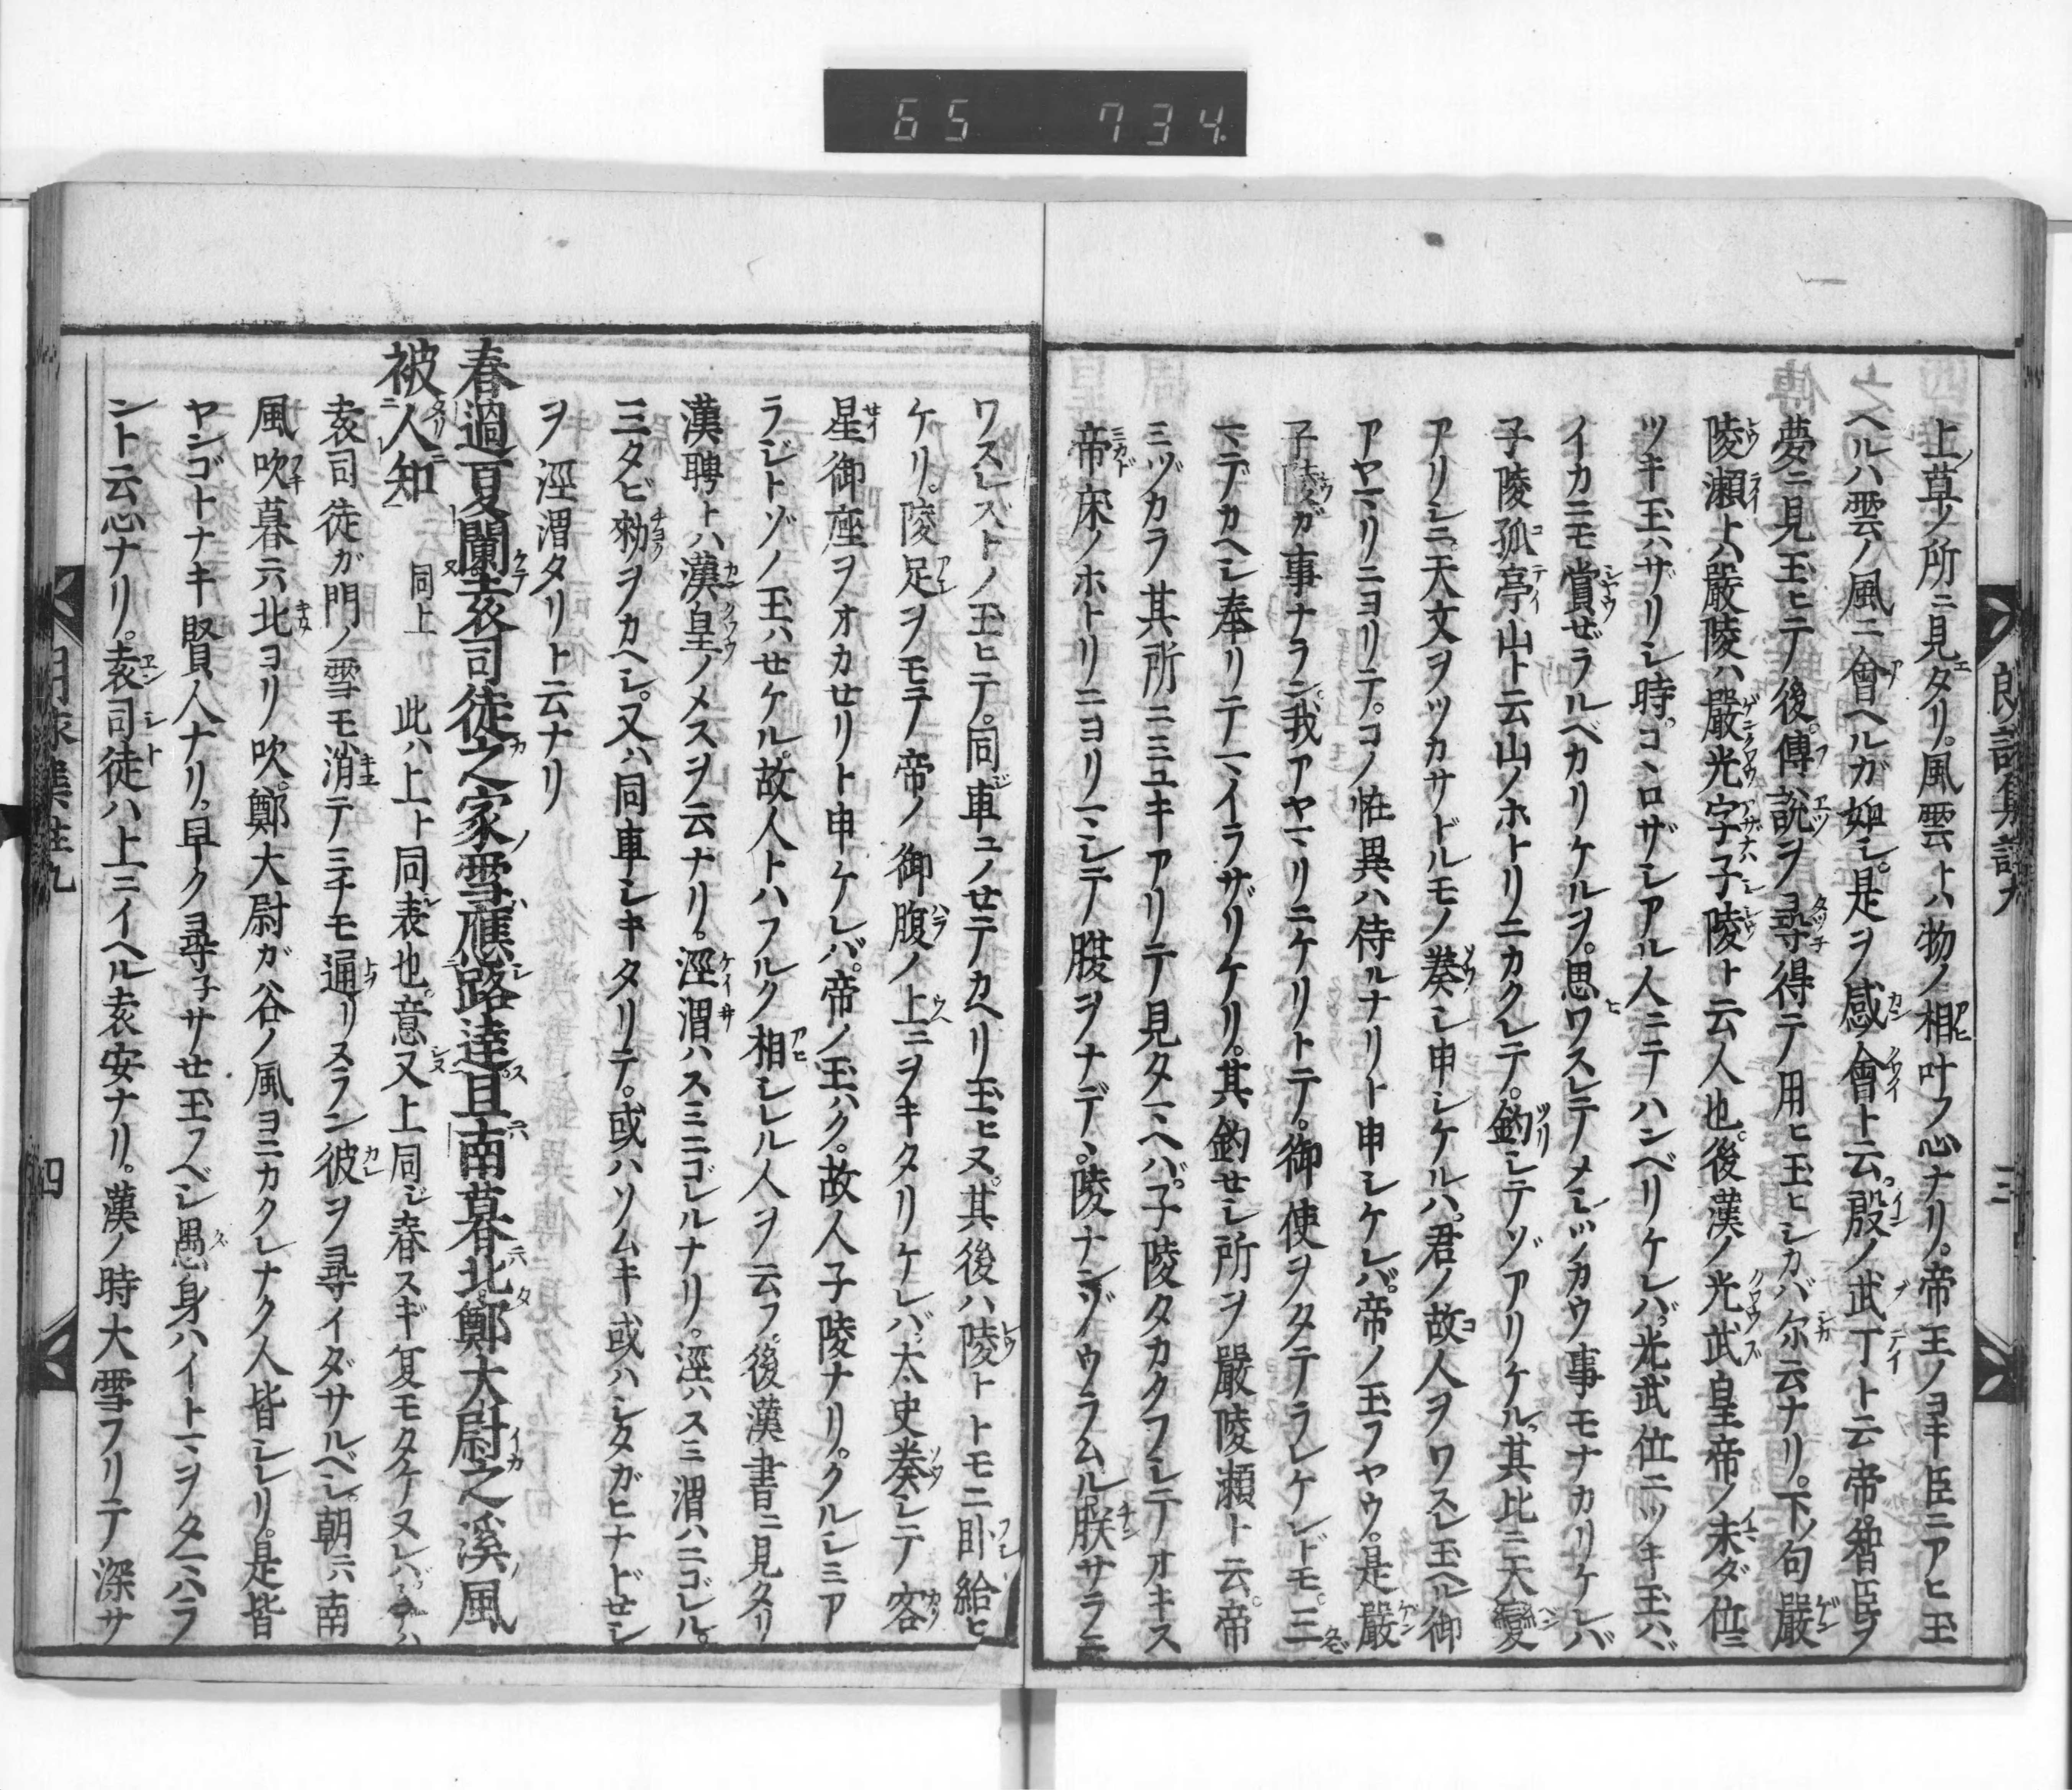 65 734
上草ノ所ニ見タリ。風雲トハ物ノ相叶フ心ナリ。帝王ノヨキ臣ニアヒ玉
ヘルハ雲ノ風ニ會ヘルガ如シ。是ヲ感會ト云。殷ノ武丁ト云帝。智臣ヲ
夢ニ見玉ヒテ後。傅說ヲ尋得テ用ヒ玉ヒシカバ尓云ナリ。下ノ句嚴
陵瀬トハ嚴陵ハ嚴光字子陵ト云人也。後漢ノ光武皇帝ノ未ダ位ニ
ツキ玉ハザリシ時。コヽロザシアル人ニテハンベリケレバ。光武位ニツキ玉ハヾ
イカニモ賞ゼラルベカリケルヲ。思ワスレテメシツカウ事モナカリケレバ
子陵孤亭山ト云山ノホトリニカクレテ。釣シテゾアリケル。其比ニ天變
アリシニ天文ヲツカサドルモノ奏シ申シケルハ。君ノ故人ヲワスレ玉ヘル御
アヤマリニヨリテ。コノ恠異ハ侍ルナリト申シケレバ。帝ノ玉フヤウ。是嚴
子陵ガ事ナラン。我アヤマリニケリトテ。御使ヲタテラレケレドモ。三
マデカヘシ奉リテマイラザリケリ。其釣セシ所ヲ嚴陵瀬ト云。帝
ミヅカラ其所ニミユキアリテ見タマヘバ。子陵タカタフレテオキス
帝床ノホトリニヨリマシテ腹ヲナデヽ。陵ナンゾウラムル朕サラニ
朗詠集註九 三
ワスレズトノ玉ヒテ。同車ユノセテカヘリ玉ヒヌ。其後ハ陵トトモニ卧給ヒ
ケリ。陵足ヲモテノ帝ノ御腹ノ上ニヲキタリケレバ。太史奏シテ客
星御座ヲオカセリト申ケレバ。帝ノ玉ハク。故人子陵ナリ。クルシミア
ラジトゾノ玉ハセケル。故人トハフルク相シレル人ヲ云フ。後漢書ニ見タリ
漢聘トハ漢皇ノメスヲ云ナリ。涇渭ハスミニゴレルナリ。涇ハスミ渭ハニゴル。
三タビ勅ヲカヘシ。又ハ同車シキタリテ。或ハソムキ或ハシタガヒナドセシ
ヲ涇渭タリト云ナリ
春過夏闌袁司徒之家雪應路達旦南暮北鄭大尉之溪風
被人知 同上 此ハ上ト同表也。意又上同ジ春スギ夏モタケヌレバ
袁司徒ガ門ノ雪モ消テミチモ通リスラン彼ヲ尋イダサルベシ。朝ニハ南
風吹暮ニハ北ヨリ吹。鄭大尉ガ谷ノ風ヨニカクレナク人皆シレリ。是皆
ヤンゴトナキ賢人ナリ。早ク尋子サセ玉フベシ愚身ハイトマヲタマハラ
ント云心ナリ。袁司徒ハ上ニイヘル袁安ナリ。漢ノ時大雪フリテ深サ
朗詠集註九 四